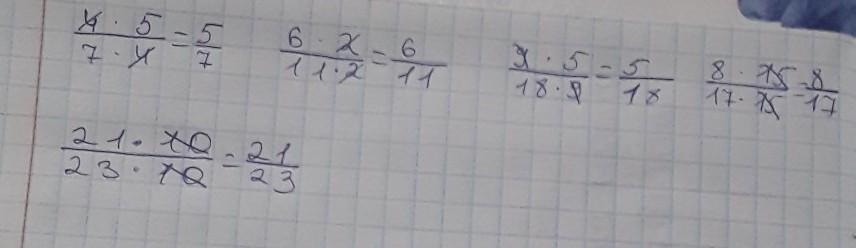 4 · 5 / 7 · 4 = 5 / 7   6 · 2 / 11 · 2 = 6 / 11   9 · 5 / 18 · 9 = 5 / 18   8 · 15 / 17 · 15 = 8 / 17
21 · 10 / 23 · 10 = 21 / 23